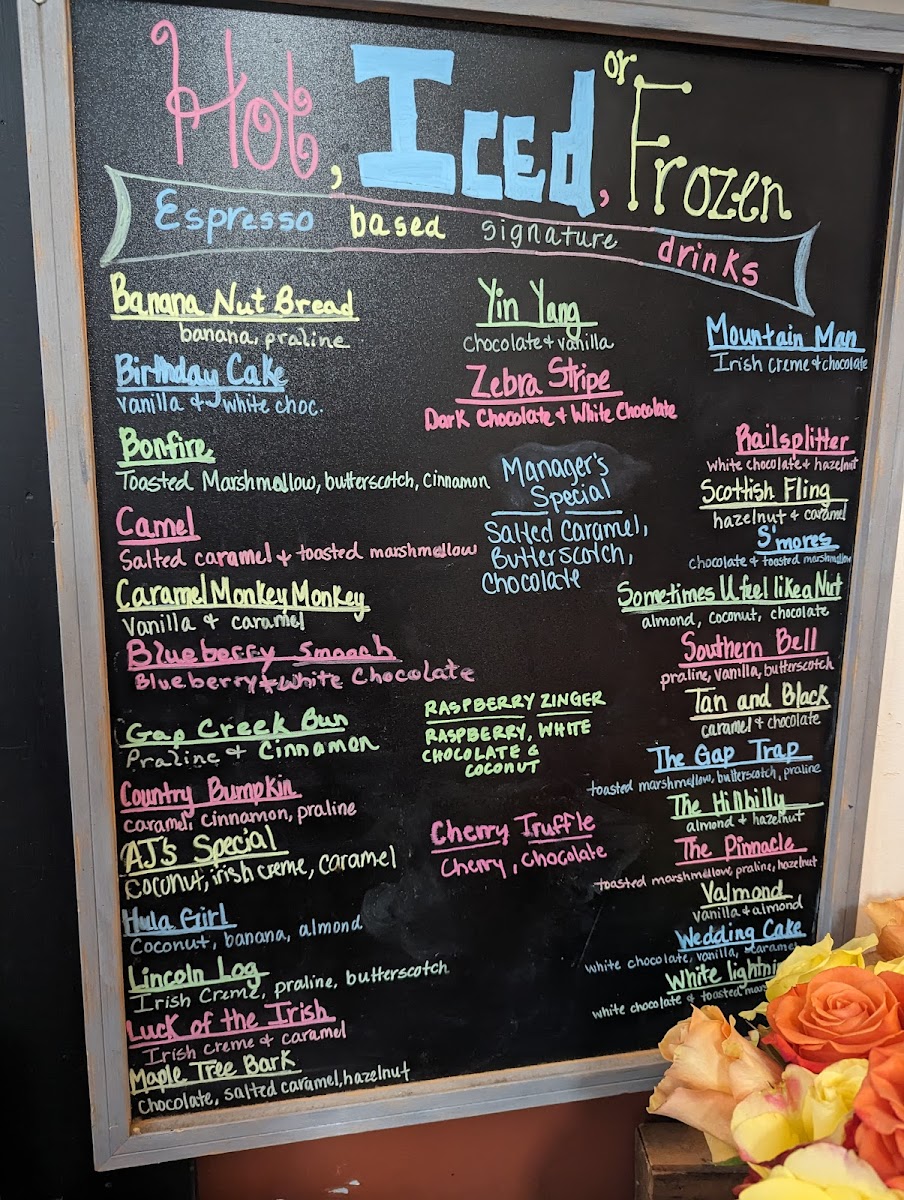 Hot, Iced, or Frozen
Espresso based signature drinks
Banana Nut Bread
banana, praline
Birthday Cake
vanilla & white choc.
Bonfire
Toasted Marshmallow, butterscotch, cinnamon
Camel
Salted caramel & toasted marshmallow
Caramel Monkey Monkey
Vanilla & caramel
Blueberry Smoosh
Blueberry & White Chocolate
Gap Creek Bun
Praline & Cinnamon
Country Bumpkin
caramel, cinnamon, praline
AJ's Special
Coconut, irish creme, caramel
Hula Girl
Coconut, banana, almond
Lincoln Log
Irish Creme, praline, butterscotch
Luck of the Irish
Irish creme & caramel
Maple Tree Bark
Chocolate, salted caramel, hazelnut
Yin Yang
chocolate & vanilla
Zebra Stripe
Dark Chocolate & White Chocolate
Manager's
Special
Salted Caramel,
Butterscotch,
Chocolate
RASPBERRY ZINGER
RASPBERRY, WHITE
CHOCOLATE &
COCONUT
Cherry Truffle
Cherry, chocolate
Mountain Man
Irish Creme & chocolate
Railsplitter
White chocolate & hazelnut
Scottish Fling
hazelnut & caramel
S'mores
chocolate & toasted marshmallow
Sometimes U feel like a Nut
almond, coconut, chocolate
Southern Bell
praline, vanilla, butterscotch
Tan and Black
caramel & chocolate
The Gap Trap
toasted marshmallow, butterscotch, praline
The Hillbilly
almond & hazelnut
The Pinnacle
toasted marshmallow, praline, hazelnut
Valmond
vanilla & almond
Wedding Cake
white chocolate, vanilla, caramel
White
white chocolate & toasted